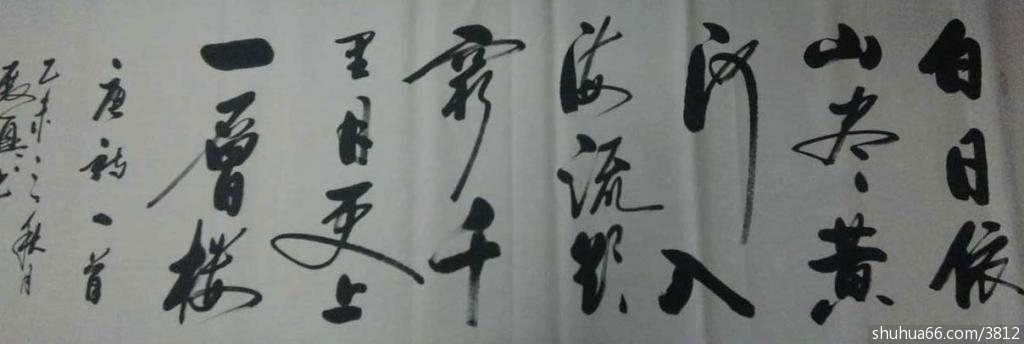 白日依
山尽黄
河入
海流欲
穷千
里目更上
一層楼
唐诗一首
乙未之秋月
shuhua66.com/3812